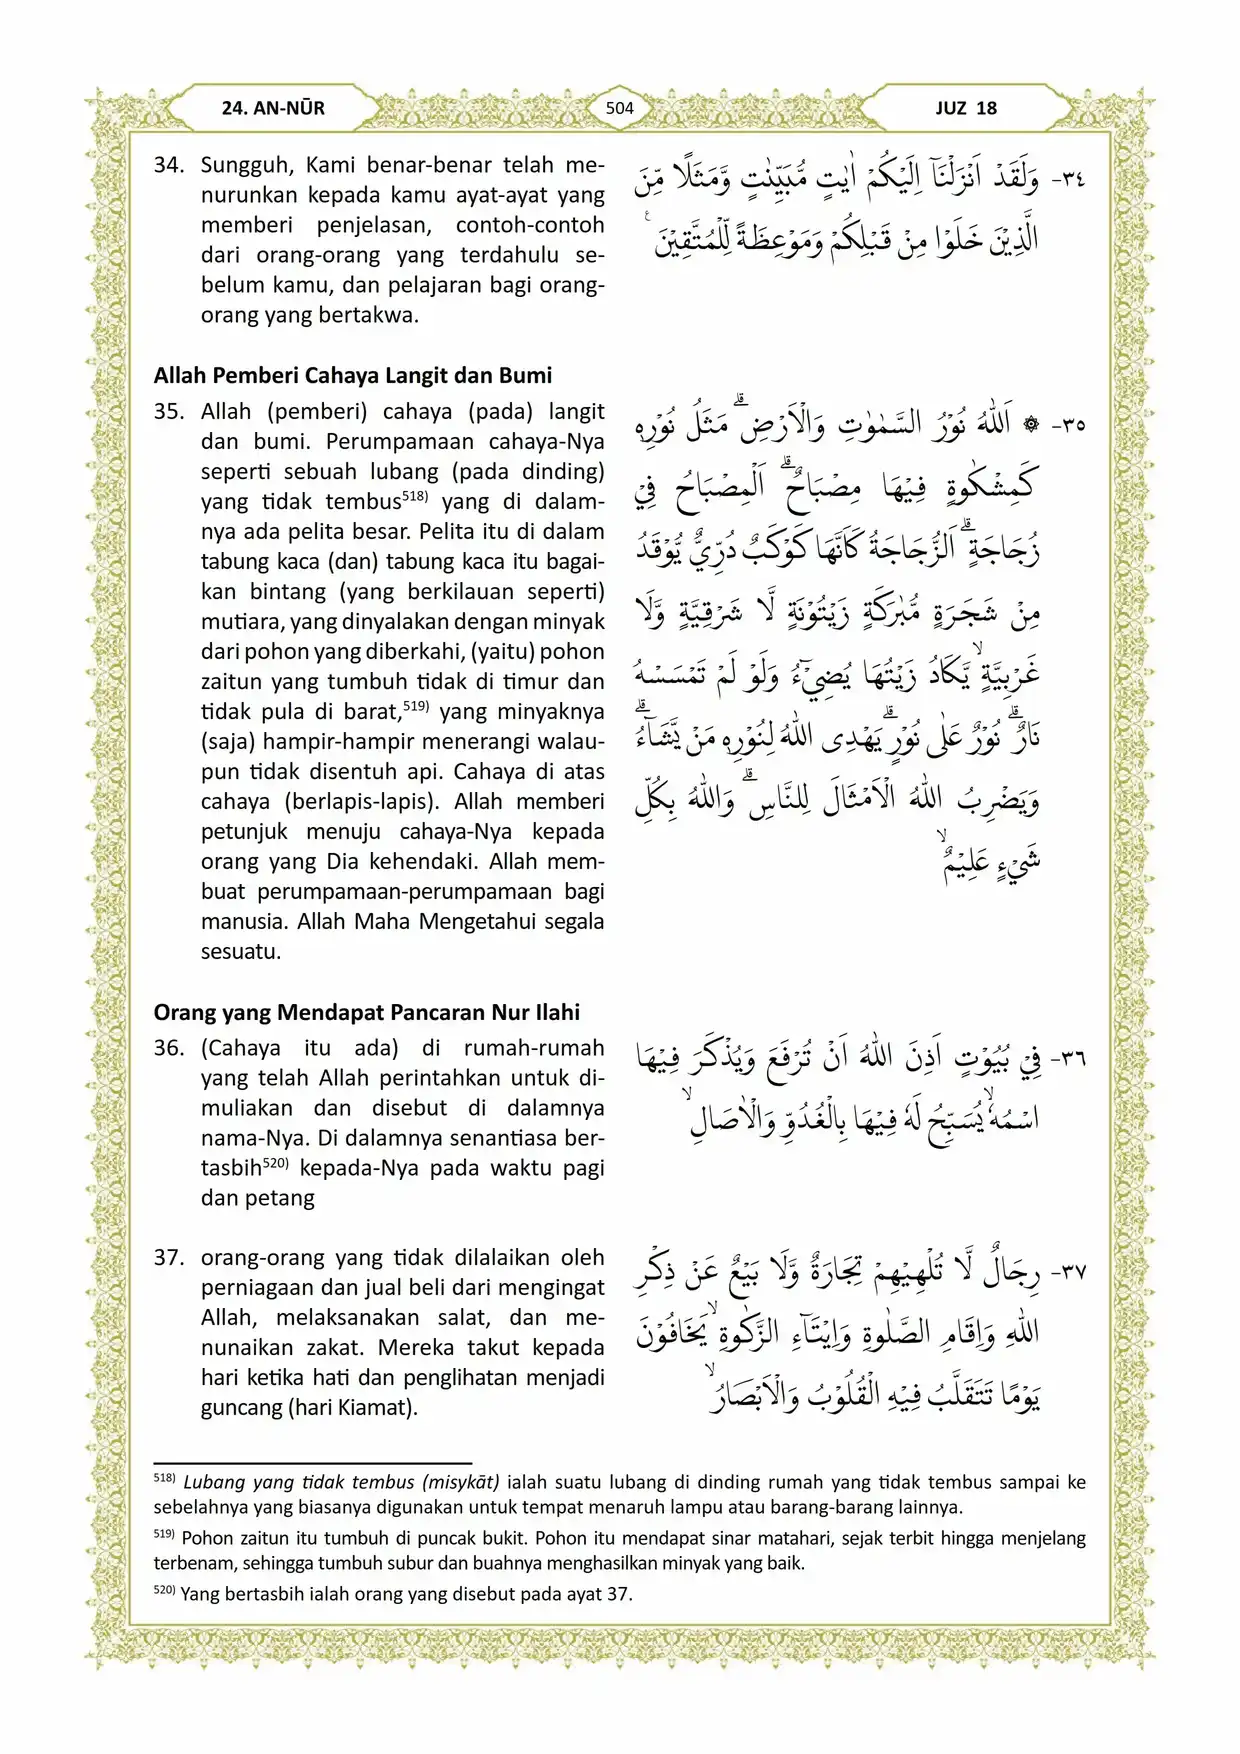 24. AN-NŪR
504
JUZ 18
34. Sungguh, Kami benar-benar telah me-
nurunkan kepada kamu ayat-ayat yang
memberi penjelasan, contoh-contoh
dari orang-orang yang terdahulu se-
belum kamu, dan pelajaran bagi orang-
orang yang bertakwa.
٣٤- وَلَقَدْ اَنْزَلْنَآ اِلَيْكُمْ اٰيٰتٍ مُّبَيِّنٰتٍ وَّمَثَلًا مِّنَ
الَّذِيْنَ خَلَوْا مِنْ قَبْلِكُمْ وَمَوْعِظَةً لِّلْمُتَّقِيْنَ ࣖ
Allah Pemberi Cahaya Langit dan Bumi
35. Allah (pemberi) cahaya (pada) langit
dan bumi. Perumpamaan cahaya-Nya
seperti sebuah lubang (pada dinding)
yang tidak tembus518) yang di dalam-
nya ada pelita besar. Pelita itu di dalam
tabung kaca (dan) tabung kaca itu bagai-
kan bintang (yang berkilauan seperti)
mutiara, yang dinyalakan dengan minyak
dari pohon yang diberkahi, (yaitu) pohon
zaitun yang tumbuh tidak di timur dan
tidak pula di barat,519) yang minyaknya
(saja) hampir-hampir menerangi walau-
pun tidak disentuh api. Cahaya di atas
cahaya (berlapis-lapis). Allah memberi
petunjuk menuju cahaya-Nya kepada
orang yang Dia kehendaki. Allah mem-
buat perumpamaan-perumpamaan bagi
manusia. Allah Maha Mengetahui segala
sesuatu.
٣٥- ۞ اَللّٰهُ نُوْرُ السَّمٰوٰتِ وَالْاَرْضِۗ مَثَلُ نُوْرِهٖ
كَمِشْكٰوةٍ فِيْهَا مِصْبَاحٌۗ اَلْمِصْبَاحُ فِيْ
زُجَاجَةٍۗ اَلزُّجَاجَةُ كَاَنَّهَا كَوْكَبٌ دُرِّيٌّ يُّوْقَدُ
مِنْ شَجَرَةٍ مُّبٰرَكَةٍ زَيْتُوْنَةٍ لَّا شَرْقِيَّةٍ وَّلَا
غَرْبِيَّةٍۙ يَّكَادُ زَيْتُهَا يُضِيْۤءُ وَلَوْ لَمْ تَمْسَسْهُ
نَارٌۗ نُوْرٌ عَلٰى نُوْرٍۗ يَهْدِى اللّٰهُ لِنُوْرِهٖ مَنْ يَّشَاۤءُۗ
وَيَضْرِبُ اللّٰهُ الْاَمْثَالَ لِلنَّاسِۗ وَاللّٰهُ بِكُلِّ
شَيْءٍ عَلِيْمٌۙ
Orang yang Mendapat Pancaran Nur Ilahi
36. (Cahaya itu ada) di rumah-rumah
yang telah Allah perintahkan untuk di-
muliakan dan disebut di dalamnya
nama-Nya. Di dalamnya senantiasa ber-
tasbih520) kepada-Nya pada waktu pagi
dan petang
٣٦- فِيْ بُيُوْتٍ اَذِنَ اللّٰهُ اَنْ تُرْفَعَ وَيُذْكَرَ فِيْهَا
اسْمُهٗۙ يُسَبِّحُ لَهٗ فِيْهَا بِالْغُدُوِّ وَالْاٰصَالِۙ
37. orang-orang yang tidak dilalaikan oleh
perniagaan dan jual beli dari mengingat
Allah, melaksanakan salat, dan me-
nunaikan zakat. Mereka takut kepada
hari ketika hati dan penglihatan menjadi
guncang (hari Kiamat).
٣٧- رِجَالٌ لَّا تُلْهِيْهِمْ تِجَارَةٌ وَّلَا بَيْعٌ عَنْ ذِكْرِ
اللّٰهِ وَاِقَامِ الصَّلٰوةِ وَاِيْتَاۤءِ الزَّكٰوةِۙ يَخَافُوْنَ
يَوْمًا تَتَقَلَّبُ فِيْهِ الْقُلُوْبُ وَالْاَبْصَارُۙ
518) Lubang yang tidak tembus (misykāt) ialah suatu lubang di dinding rumah yang tidak tembus sampai ke
sebelahnya yang biasanya digunakan untuk tempat menaruh lampu atau barang-barang lainnya.
519) Pohon zaitun itu tumbuh di puncak bukit. Pohon itu mendapat sinar matahari, sejak terbit hingga menjelang
terbenam, sehingga tumbuh subur dan buahnya menghasilkan minyak yang baik.
520) Yang bertasbih ialah orang yang disebut pada ayat 37.